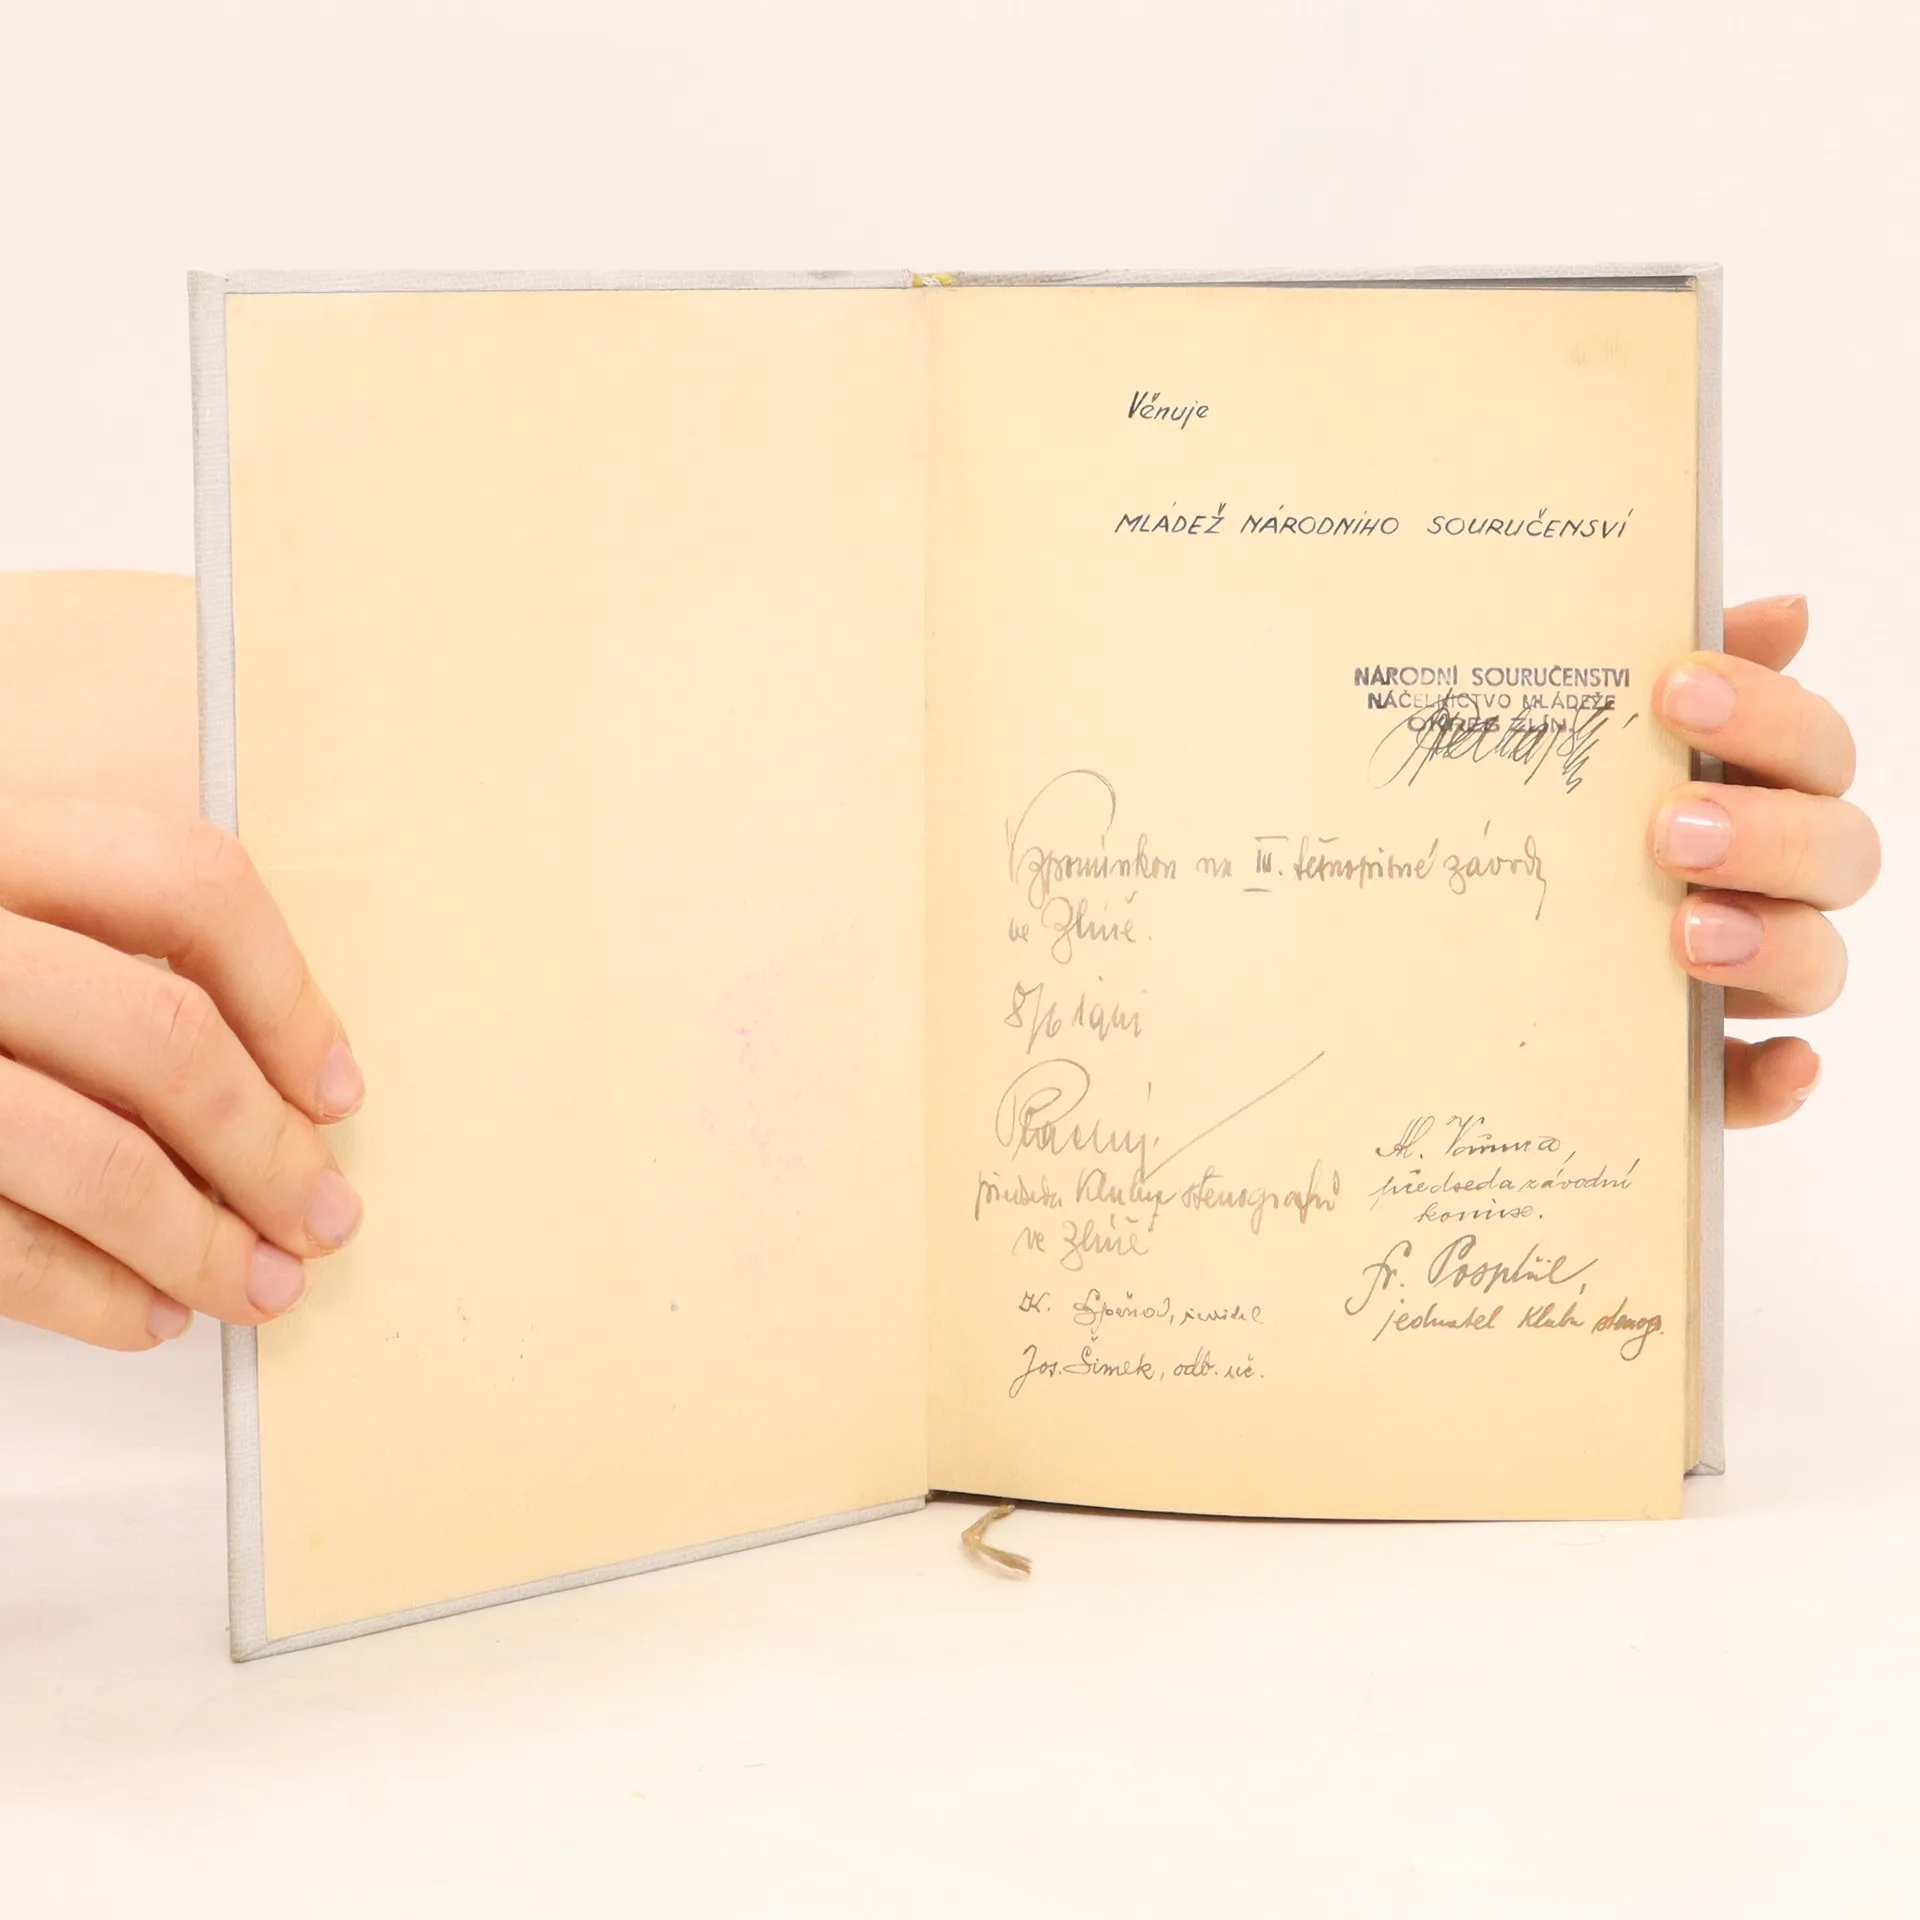 Věnuje
MLÁDEŽ NÁRODNÍHO SOURUČENSVÍ
NÁRODNÍ SOURUČENSTVÍ
NÁČELNICTVO MLÁDEŽE
OKRES ZLÍN.
Vzpomínkou na III. těsnopisné závody
ve Zlíně.
8/6
předseda Klubu stenografů
ve Zlíně
Al.
předseda závodní
komise.
Fr. Pospíšil,
jednatel Klubu stenogr.
K.
Jos. Šimek, odb. uč.